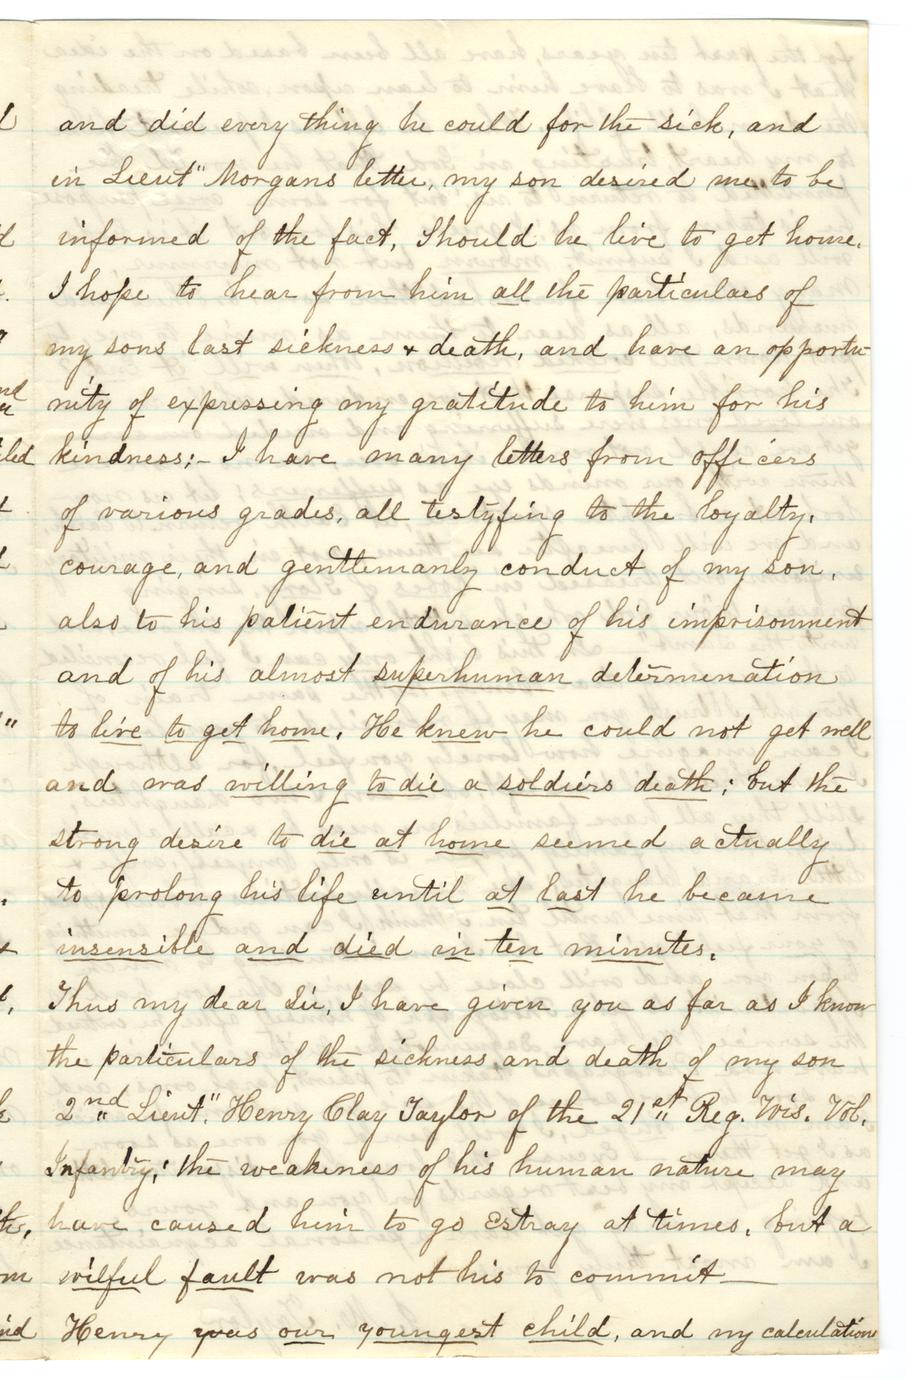 and did every thing he could for the sick, and
in Lieut" Morgans letter, my son desired me to be
informed of the fact, Should he live to get home.
I hope to hear from him all the particulaes of
my sons last sickness & death, and have an opportu-
nity of expressing my gratitude to him for his
kindness;- I have many letters from officers
of various grades, all testyfing to the loyalty,
courage, and gentlemanly conduct of my son,
also to his patient endurance of his imprisonment
and of his almost superhuman determenation
to live to get home. He knew he could not get well
and was willing to die a soldiers death; but the
strong desire to die at home seemed actually
to prolong his life until at last he became
insensible and died in ten minutes.
Thus my dear Sir, I have given you as far as I know
the particulars of the sickness and death of my son
2nd Lieut". Henry Clay Taylor of the 21st Reg. Wis. Vol.
Infantry; the weakeness of his human nature may
have caused him to go Estray at times, but a
wilful fault was not his to commit—
Henry was our youngest child, and my calculations